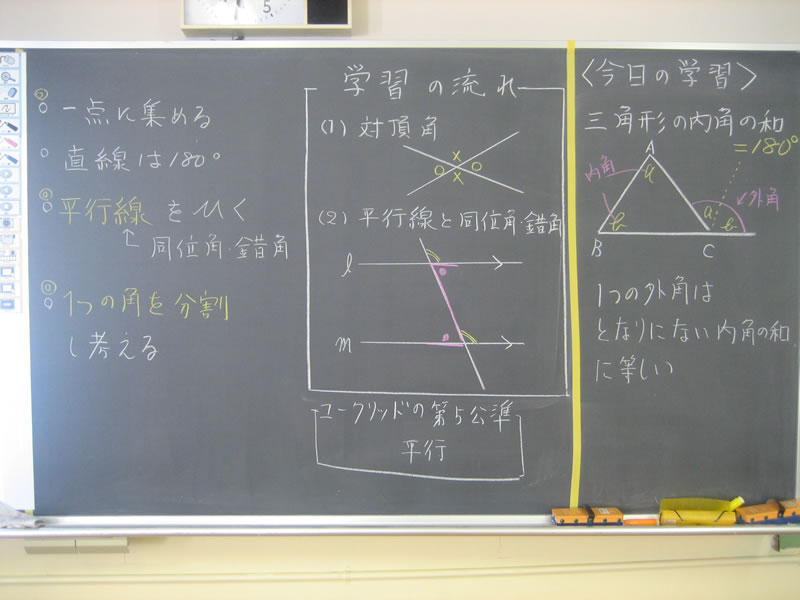 一点に集める
直線は180°
平行線をひく
同位角・錯角
1つの角を分割
し考える
学習の流れ
(1) 対頂角
x
o
o
x
(2) 平行線と同位角・錯角
l
m
ユークリッドの第5公準
平行
〈今日の学習〉
三角形の内角の和
=180°
A
内角
a
外角
b
a
b
B
C
1つの外角は
となりにない内角の和
に等しい
5